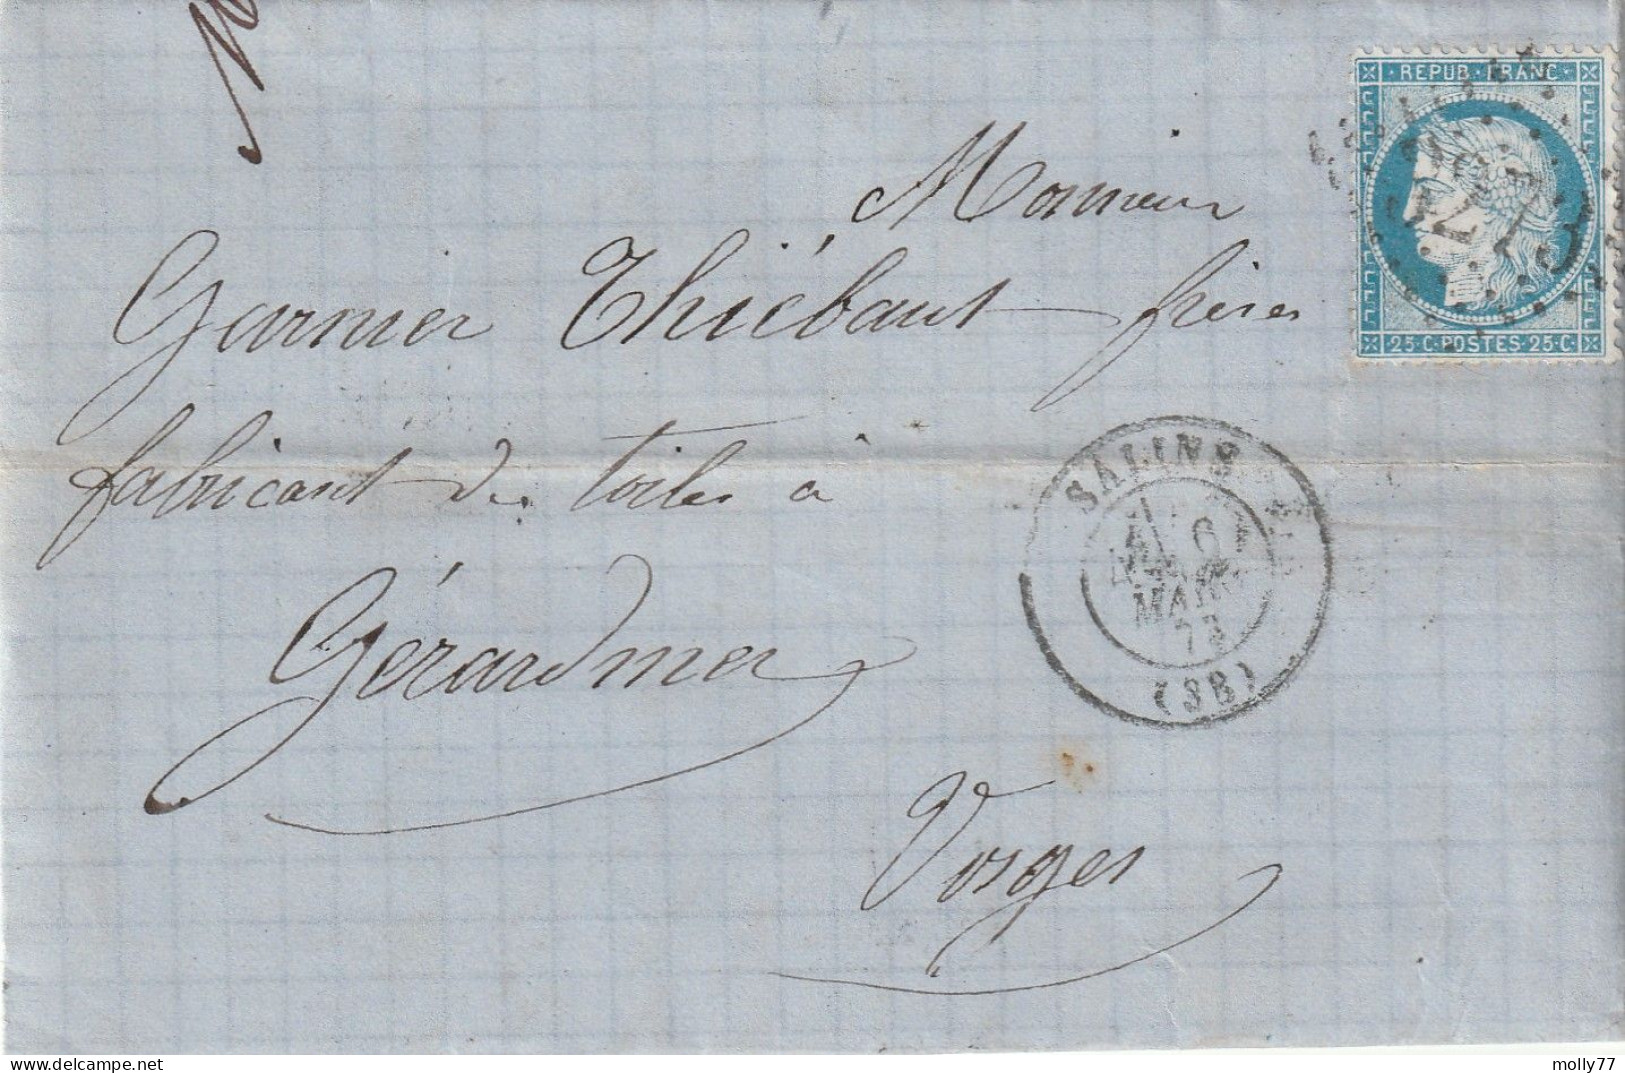 REPUB · FRANC ·
25 · C · POSTES · 25 · C ·
Monsieur
Garnier Thiébaut frères
fabricant de toiles à
Gérardmer
Vosges
SALINS
6
MARS
73
(38)
molly77